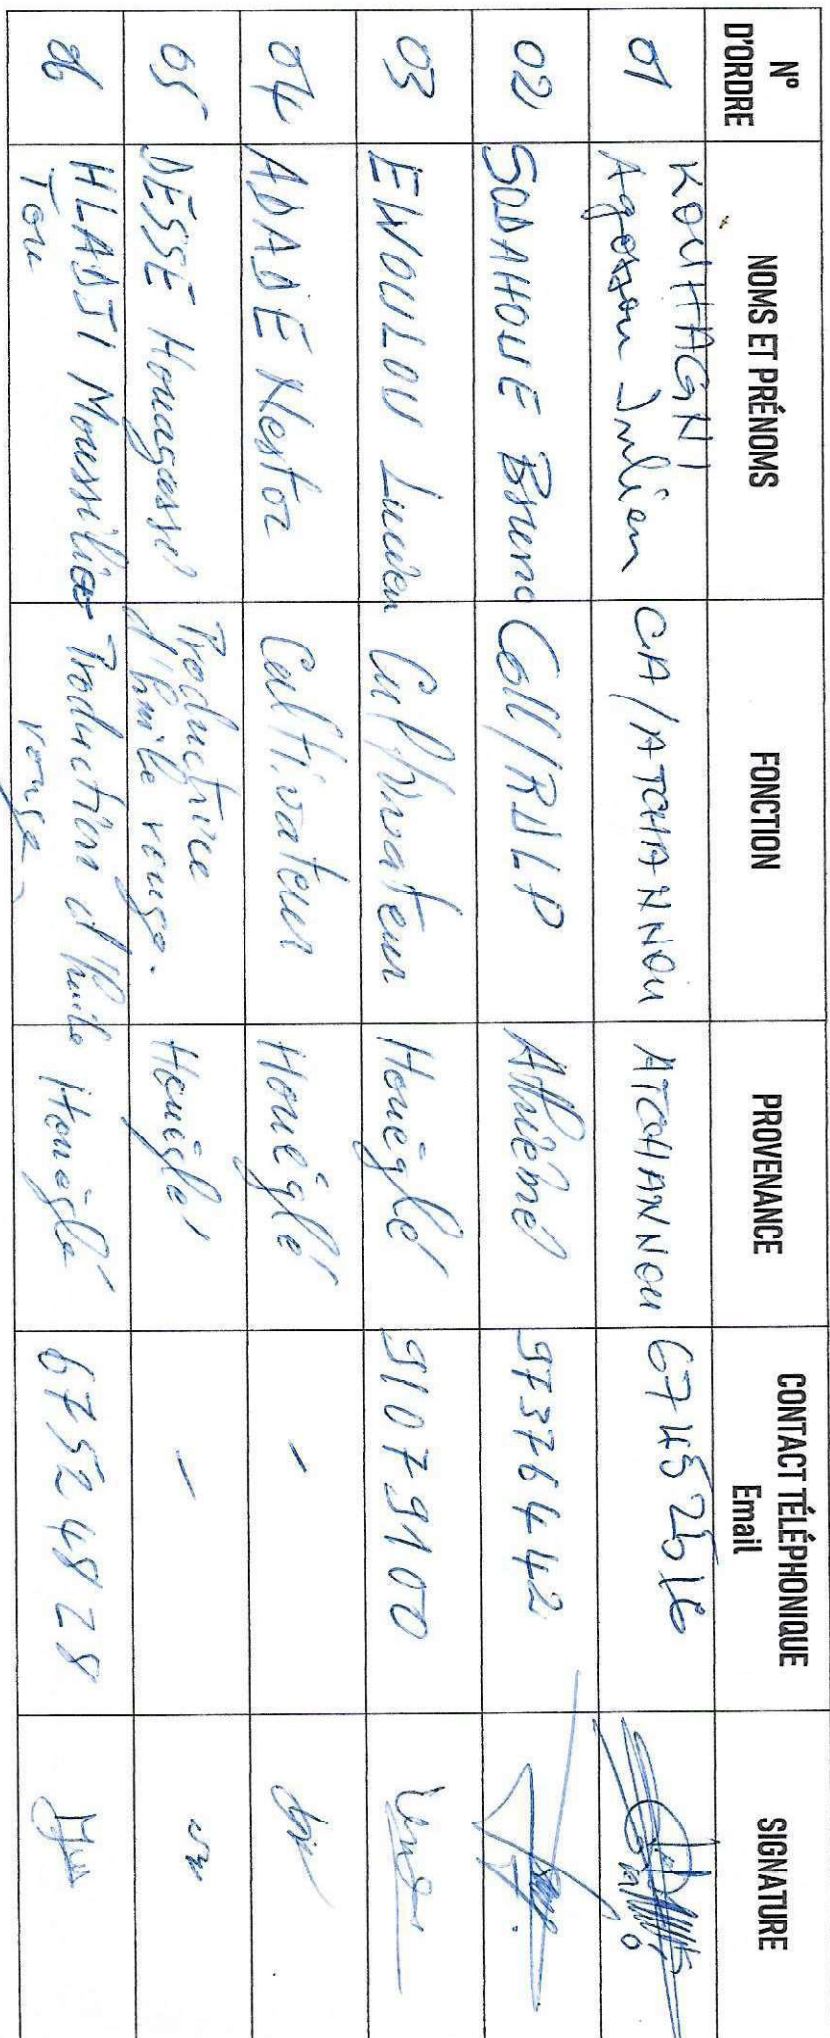 N° D'ORDRE NOMS ET PRÉNOMS FONCTION PROVENANCE CONTACT TÉLÉPHONIQUE Email SIGNATURE
01 KOUHAGNI Agossou Julien CA/ATCHANNOU ATCHANNOU 67452516
02 SODAHOUE Bruno CoII/RDLP Athiémé 97376442
03 Lucien Cultivateur Honeglé 91079100
04 ADADE Nestor Cultivateur Honéglé -
05 DESSE Productrice d'huile rouge. Honéglé -
06 HLADJI Production d'huile rouge Honéglé 67524828